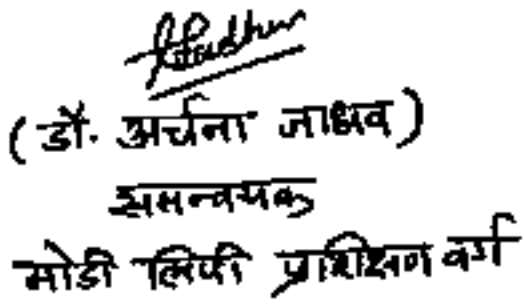 (डॉ. अर्चना जाधव)
समन्वयक
मोडी लिपी प्रशिक्षण वर्ग